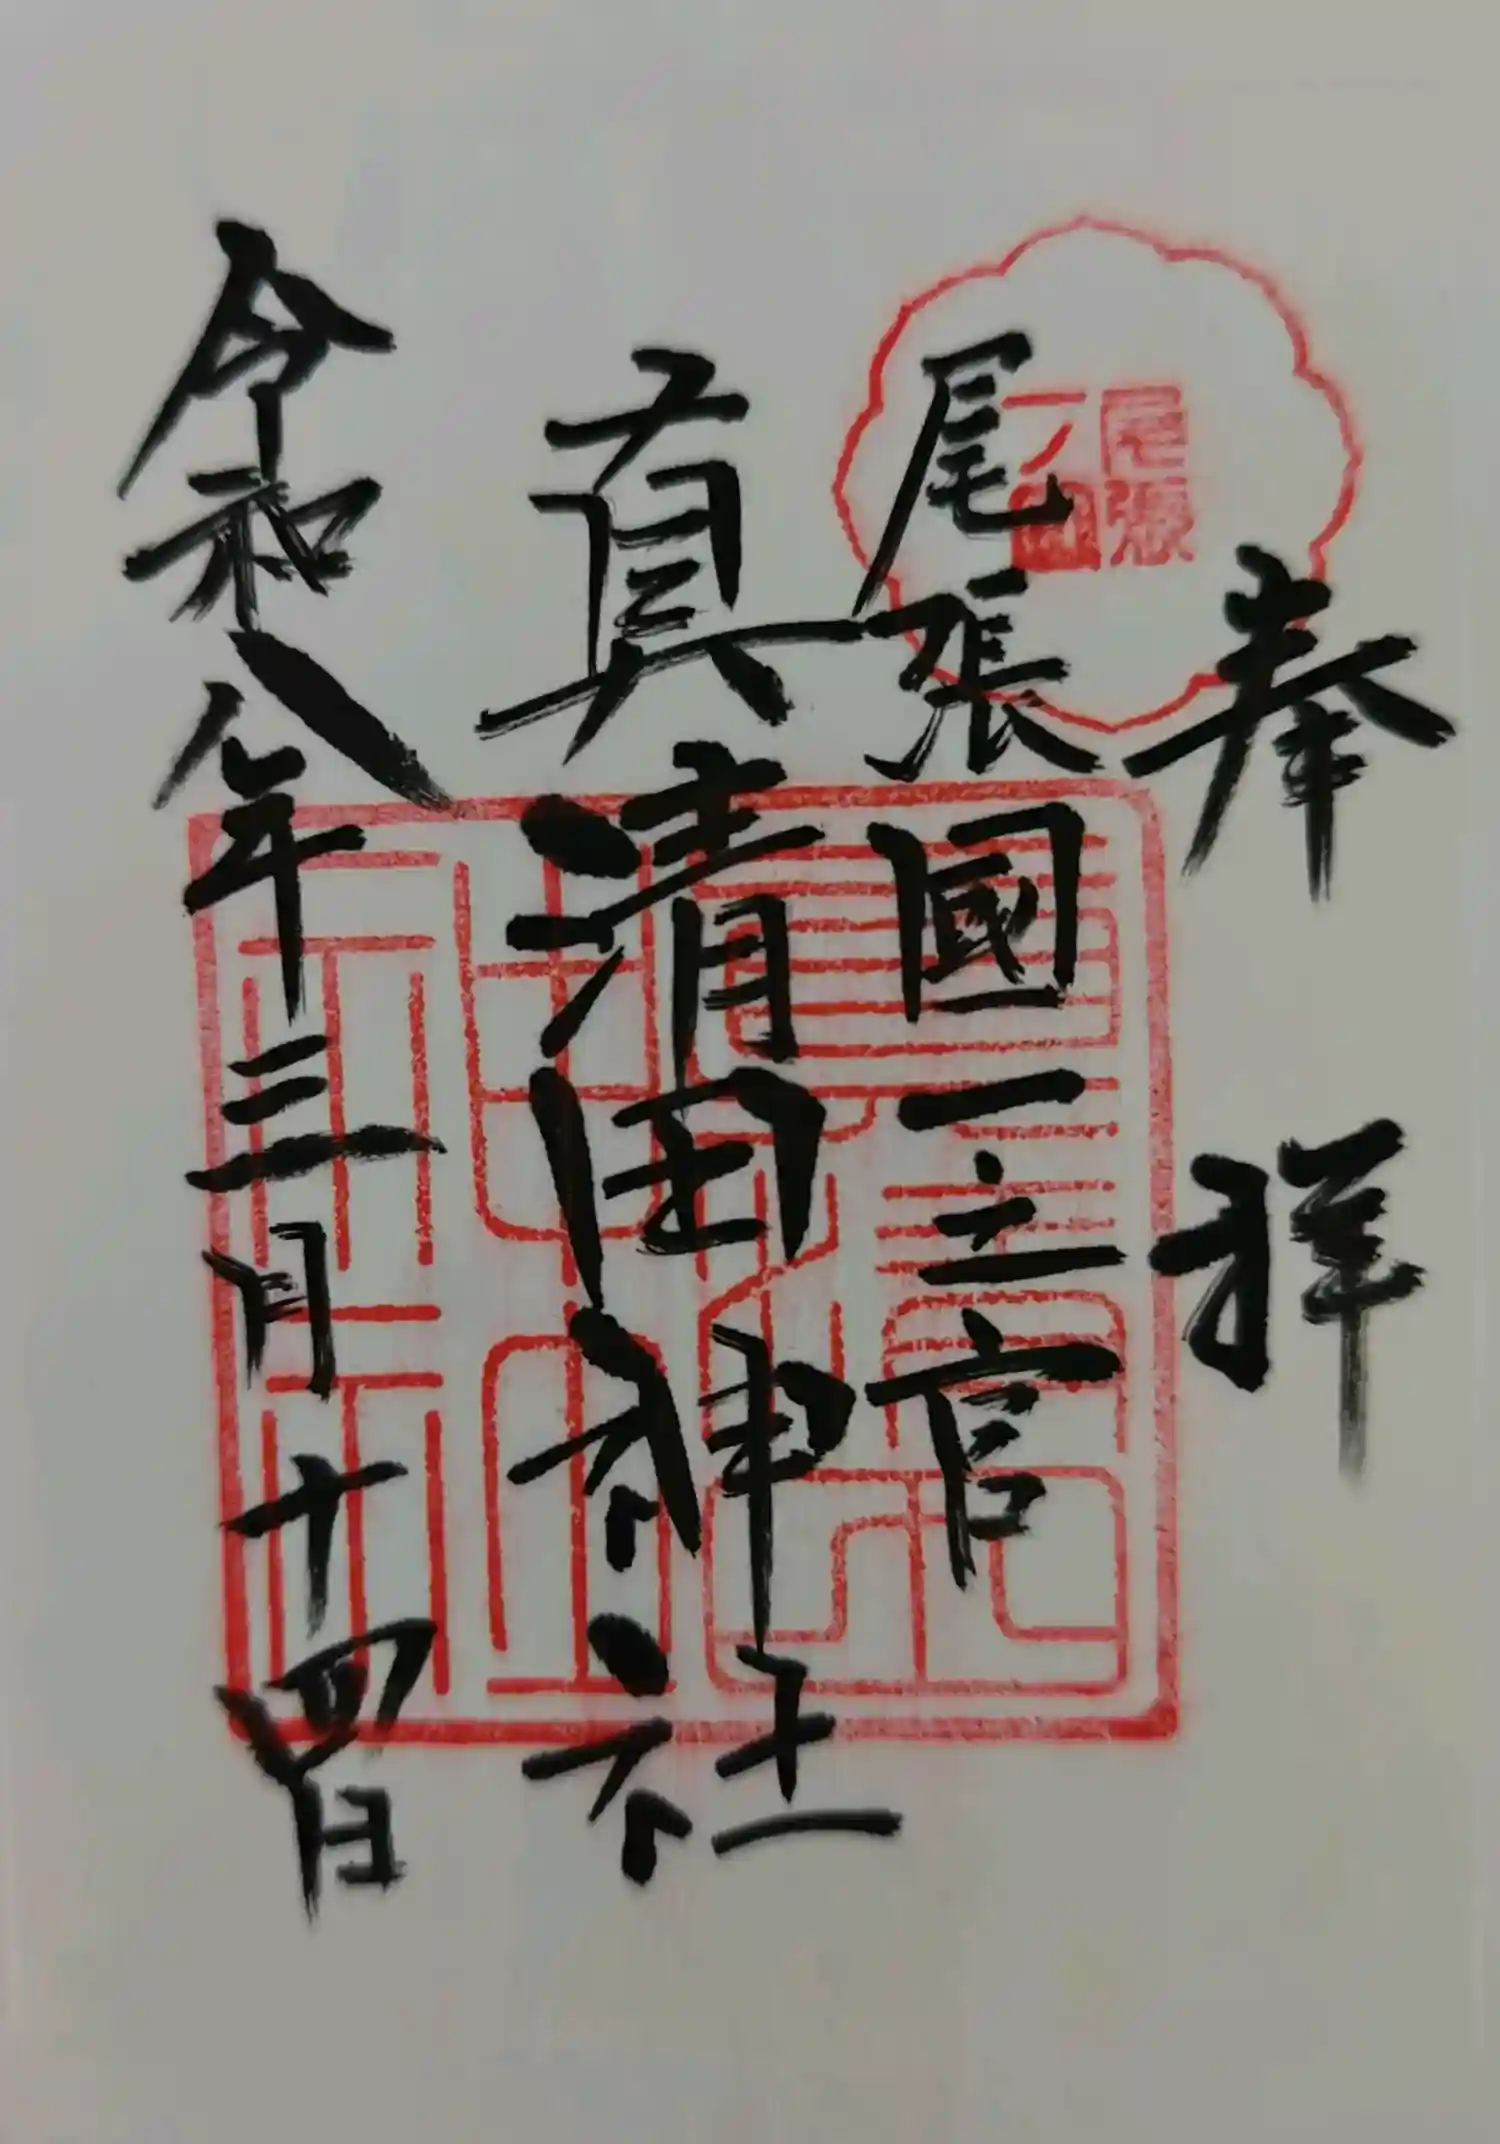 奉拝
尾張
一ノ宮
尾張國一之宮
真清田神社
令和八年三月十四日